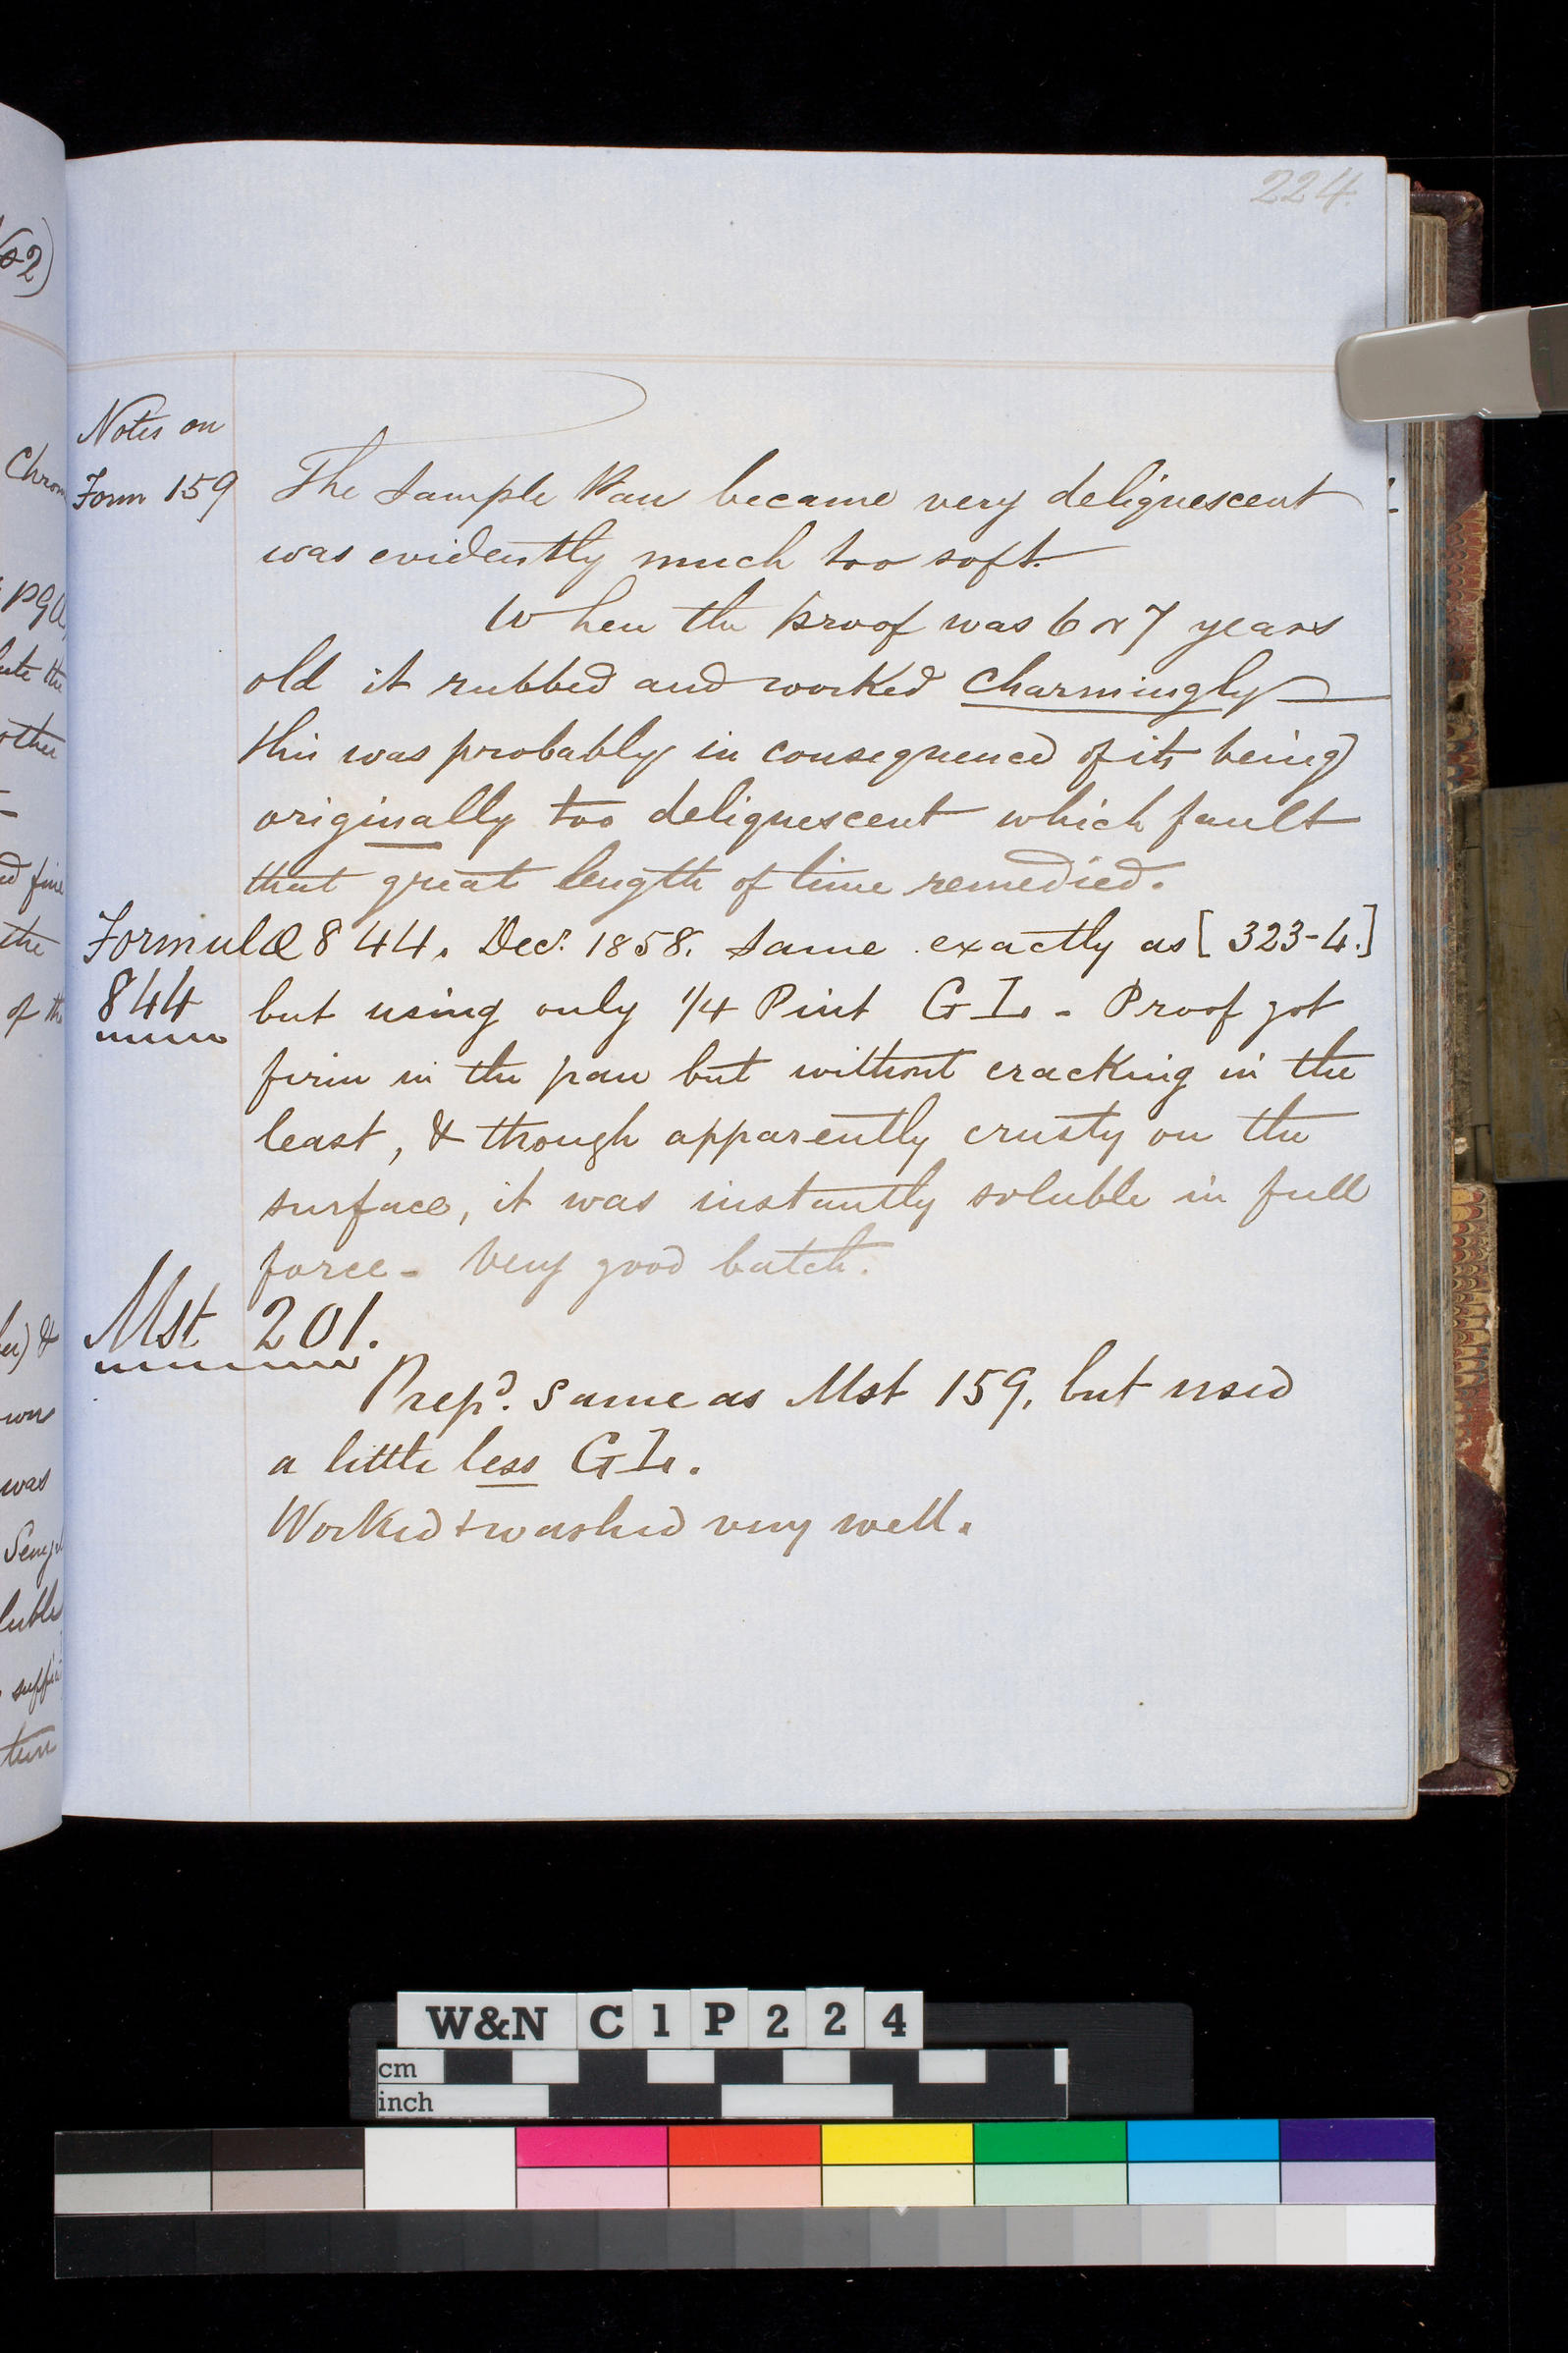 224.
Notes on
Form 159
The Sample Pan became very deliquescent
was evidently much too soft.
When the proof was 6 or 7 years
old it rubbed and worked charmingly
this was probably in consequence of its being
originally too deliquescent which fault
that great length of time remedied.
Formula 844. Decr. 1858. Same exactly as [323-4.]
844 but using only 1/4 Pint GL. - Proof got
firm in the pan but without cracking in the
least, & though apparently crusty on the
surface, it was instantly soluble in full
force - Very good batch.
Mst 201.
Prepd. same as Mst 159, but used
a little less GL.
Worked + washed very well.
W&N C1P224
cm
inch